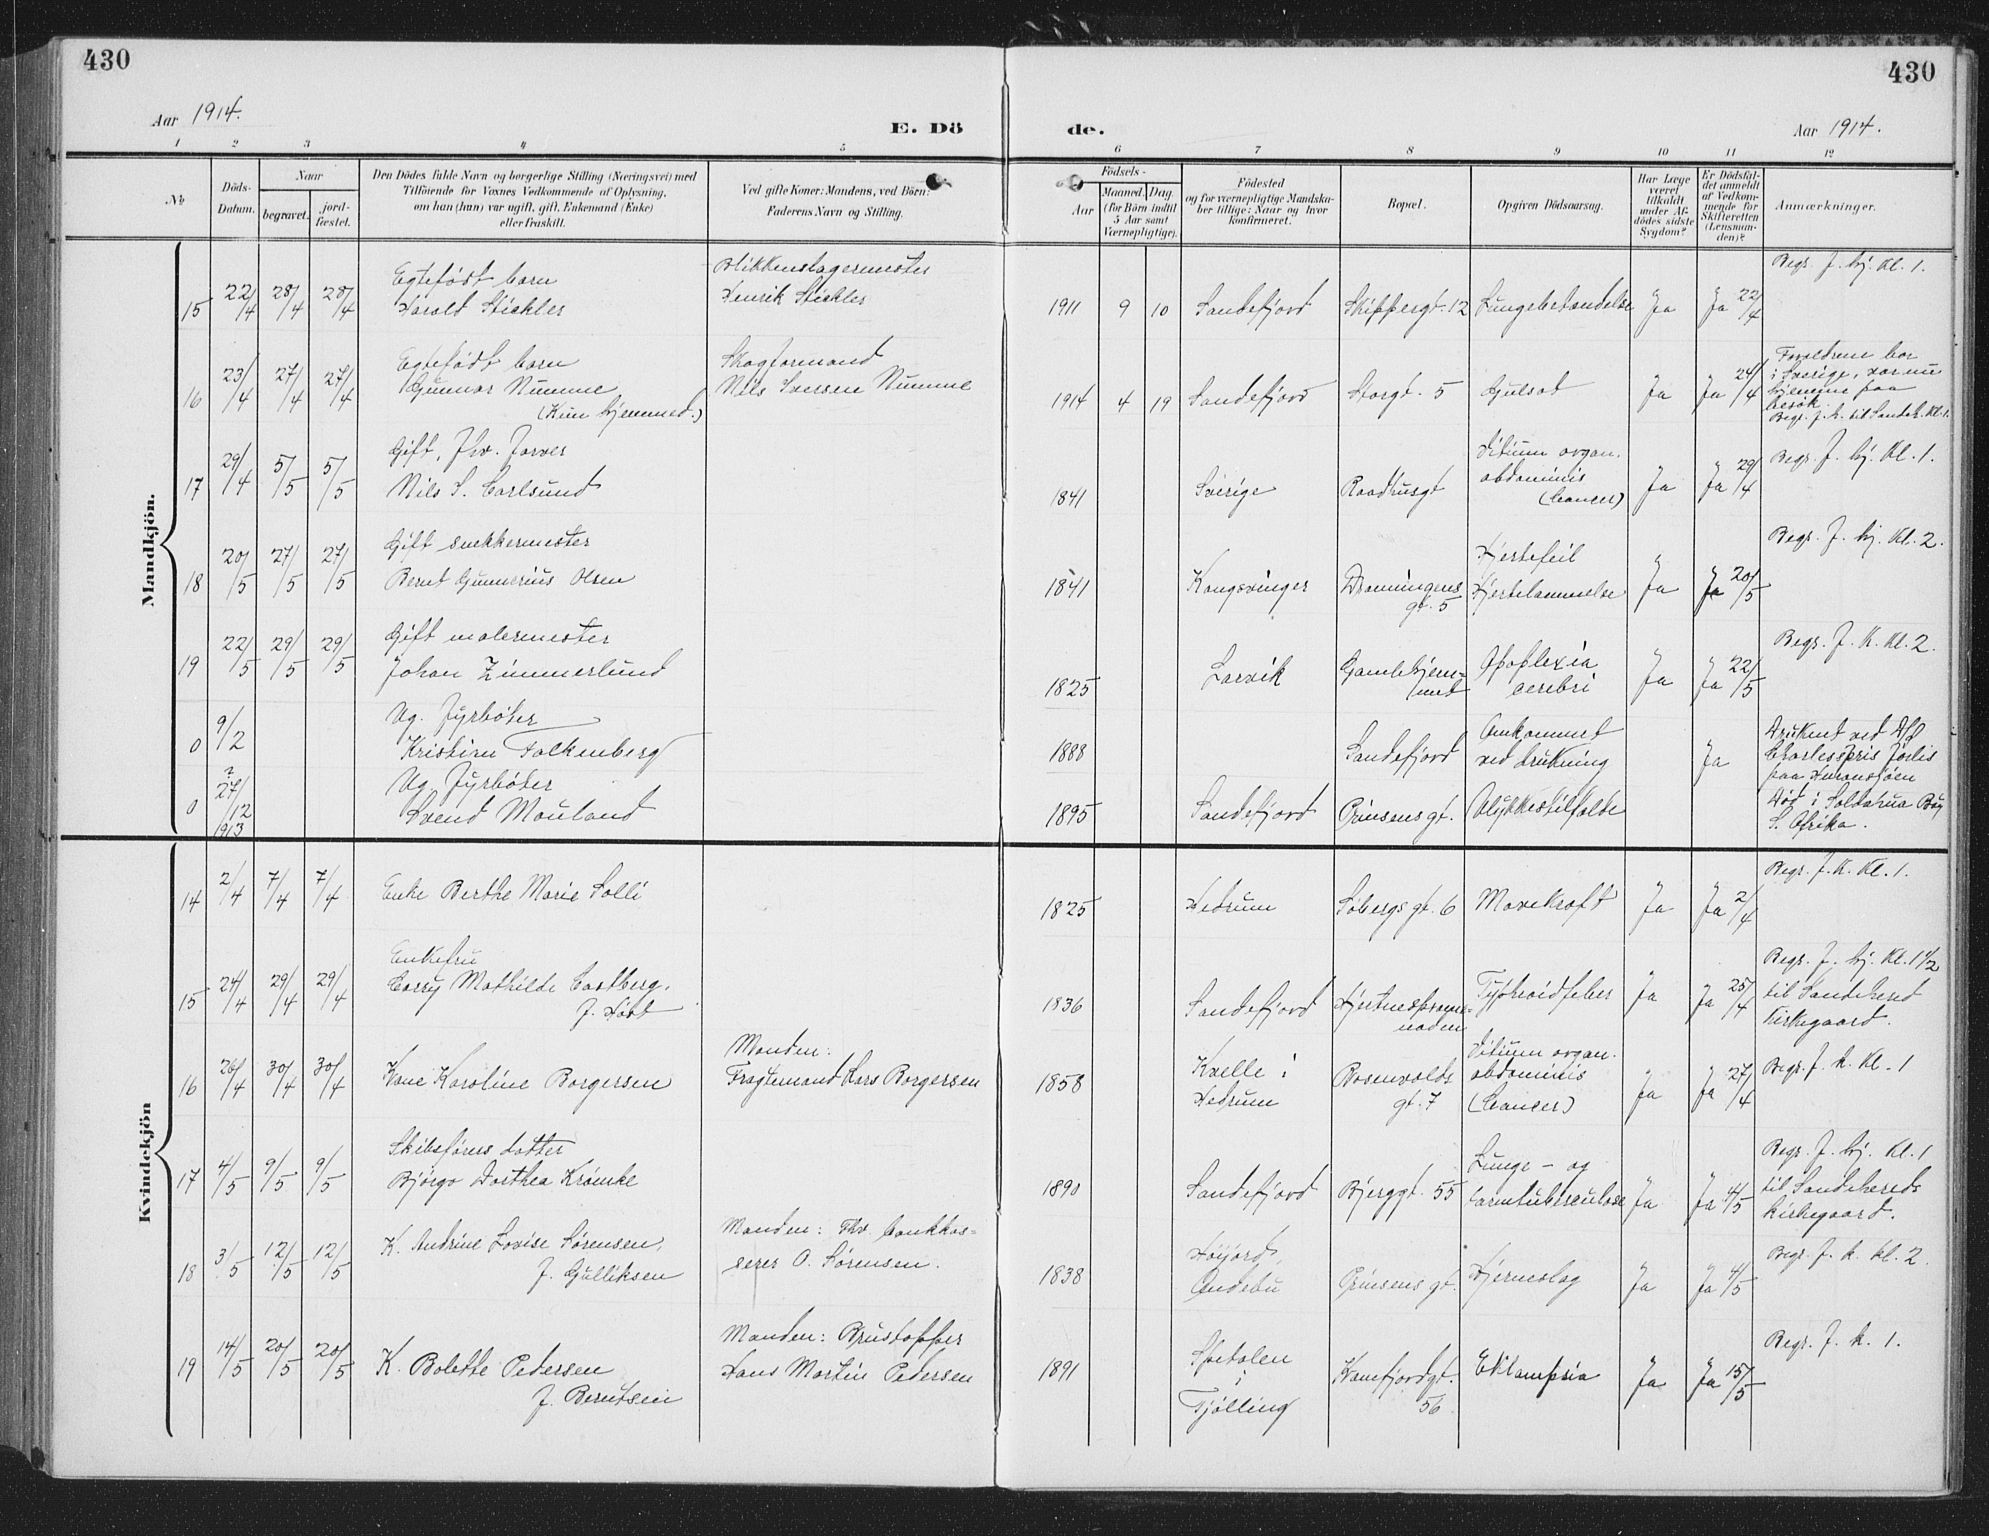 430
430
Aar 1914.
E. Dö
de.
Aar 1914.
1 2 3 4 5 6 7 8 9 10 11 12
No
Döds-Datum.
Naar
begravet.
jord-fæstet.
Den Dödes fulde Navn og borgerlige Stilling (Næringsvei) med
Tilföiende for Voxnes Vedkommende af Oplysning,
om han (hun) var ugift, gift, Enkemand (Enke)
eller fraskilt.
Ved gifte Koner: Mandens, ved Börn:
Faderens Navn og Stilling.
Födsels-
Aar
Maaned. Dag.
(for Börn indtil
5 Aar samt
Værnepligtige).
Födested
og for værnepligtige Mandska-
ber tillige: Naar og hvor
konfirmeret.
Bopæl.
Opgiven Dödsaarsag.
Har Læge
været
tilkaldt
under Af-
dödes sidste
Sygdom?
Er Dödsfal-
det anmeldt
af Vedkom-
mende for
Skifteretten
(Lensman-
den)?
Anmærkninger.
Mandkjön.
15 22/4 28/4 28/4 Egtefødt barn
Harald Stickler
Blikkenslagermester
Henrik Stickler
1911 9 10 Sandefjord Skippergt. 12 Lungebetændelse Ja Ja 22/4
Begr. f. hj. Kl. 1.
16 23/4 27/4 27/4 Egtefødt barn
Gunnar Numme
(Kun hjemmed.)
Skogformand
Nils Iversen Numme
1914 4 19 Sandefjord Storgt. 5 Gulsot Ja Ja 24/4
Forældrene bor
i Sverige, var nu
hjemme paa
besøk.
Begr. f. k. til Sandeh. Kl. 1.
17 29/4 5/5 5/5 Gift, fhv. farver
Nils S. Carlsund
1841 Sverige Raadhusgt
Vitium organ.
abdominis
(Cancer)
Ja Ja 29/4
Begr. f. hj. Kl. 1.
18 20/5 27/5 27/5 Gift snekkermester
Bernt Gunnerius Olsen
1841 Kongsvinger Dronningens
gt. 5
Hjertefeil
Hjertelammelse
Ja Ja 20/5
Begr. f. hj. Kl. 2.
19 22/5 29/5 29/5 Gift malermester
Johan Zimmerlund
1825 Larvik Gamlehjem-
met
Apoplexia
cerebri
Ja Ja 22/5
Begr. f. K. Kl. 2.
0 9/2 Ug. fyrbøter
Kristian Falkenberg
1888 Sandefjord
Omkommet
ved drukning
Ja
Druknet ved
0 ? 27/12 1913 Ug. fyrbøter
Svend Mauland
1895 Sandefjord Prinsens gt. Ulykkestilfælde
Død i Saldanha Bay
S. Afrika.
Kvindekjön
14 2/4 7/4 7/4 Enke Berthe Marie Solli
1825 Hedrum Søbergs gt. 6 Mavekræft Ja Ja 2/4
Begr. f. K. Kl. 1.
15 24/4 29/4 29/4 Enkefru
Mathilde Castberg,
1836 Sandefjord Hjertnespreme-
naden
Typhoidfeber Ja Ja 25/4
Begr. f. hj. Kl. 1 1/2
til Sandehered
Kirkegaard.
16 26/4 30/4 30/4 Kone Karoline Borgersen
Manden:
Fragtemand Lars Borgersen
1858 Kvelle i
Hedrum
Rosenvolds
gt. 7
Vitium organ.
abdominis
(Cancer)
Ja Ja 27/4
Begr. f. k. Kl. 1
17 4/5 9/5 9/5 Skibsførers datter
Dorthea
1890 Sandefjord Bjerggt. 55
Lunge- og
tarmtuberculose
Ja Ja 4/5
Begr. f. hj. Kl. 1
til Sandehereds
kirkegaard.
18 3/5 12/5 12/5 K. Andrine Lovise Sørensen,
f. Gulliksen
Manden: Fhv. bankkas-
serer O. Sørensen.
1838 Høijord,
Andebu
Prinsens gt. Hjerneslag Ja Ja 4/5
Begr. f. k. Kl. 2
19 14/5 20/5 20/5 K. Bolette Pedersen
f. Berntsen
Manden:
Hans Martin Pedersen
1891
i
Tjølling
Kamfjordgt.
56
Eklampsia Ja Ja 15/5
Begr. f. k. 1.